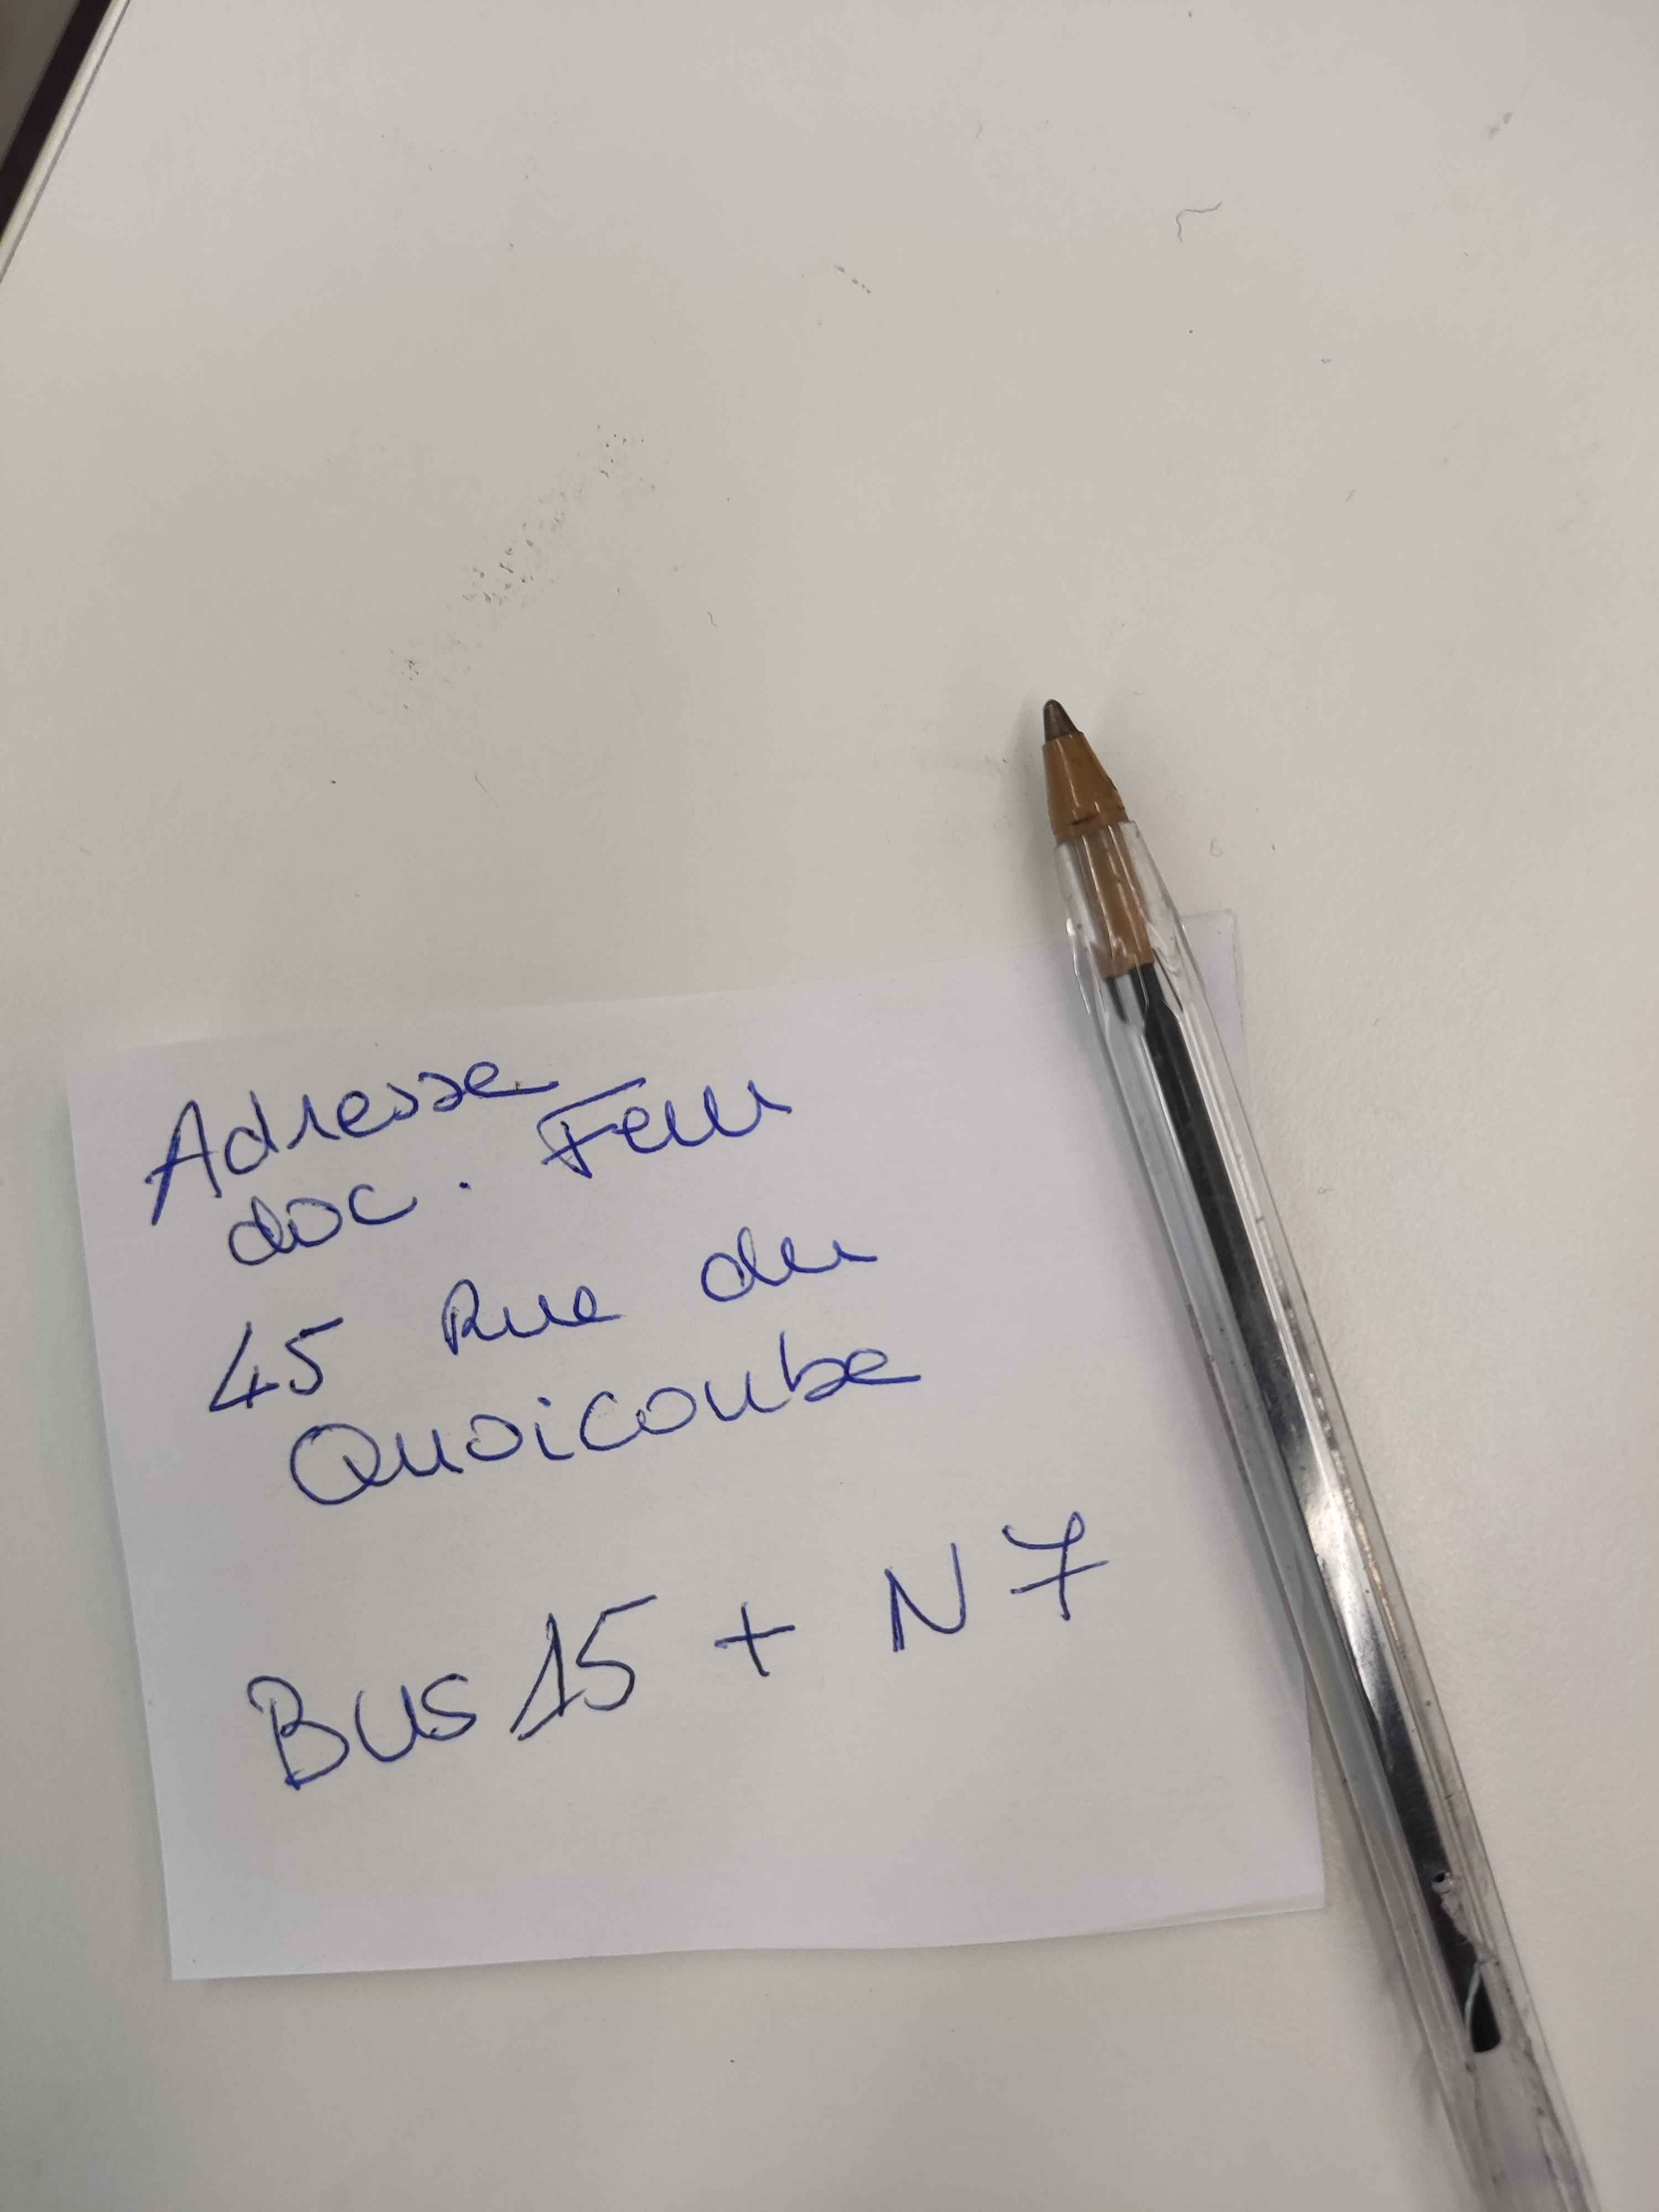 Adresse
doc. Feuu
45 Rue du
Quoicoube
Bus 15 + N7